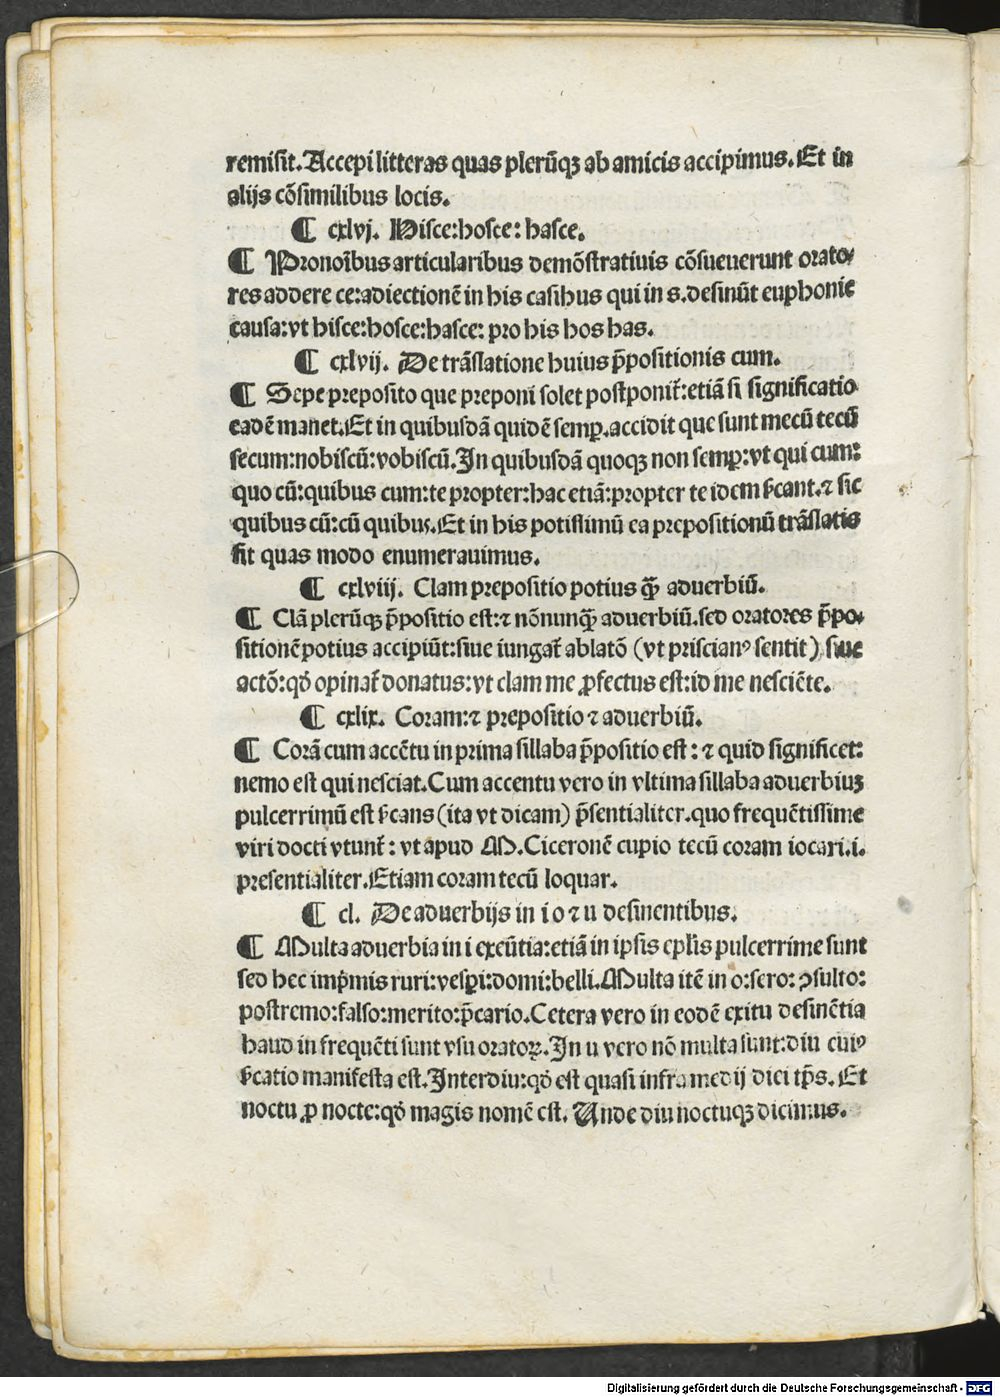 remisit. Accepi litteras quas plerũqꝫ ab amicis accipimus. Et in
alijs cõsimilibus locis.
¶ cxlvj. Hisce: hosce: hasce.
¶ Pronoĩbus articularibus demõstratiuis cõsueuerunt orato⸗
res addere ce: adiectionẽ in his casibus qui in s. desinũt euphonie
causa: vt hisce: hosce: hasce: pro his hos has.
¶ cxlvij. De trãslatione huius p̃positionis cum.
¶ Sepe preposito que preponi solet postponit᷑: etiã si significatio
eadẽ manet. Et in quibusdã quidẽ semꝑ. accidit que sunt mecũ tecũ
secum: nobiscũ: vobiscũ. In quibusdã quoqꝫ non semꝑ: vt qui cum:
quo cũ: quibus cum: te propter: hac etiã: propter te idem ẜcant. ⁊ sic
quibus cũ: cũ quibus. Et in his potissimũ ea prepositionũ trãslatis
fit quas modo enumerauimus.
¶ cxlviij. Clam prepositio potius q̃ʒ aduerbiũ.
¶ Clã plerũqꝫ p̃positio est: ⁊ nõnunq̃ʒ aduerbiũ. sed oratores p̃po⸗
sitionẽ potius accipiũt: siue iungat᷑ ablatõ (vt priscianꝰ sentit) siue
actõ: qđ opinat᷑ donatus: vt clam me ꝓfectus est: id me nesciẽte.
¶ cxlix. Coram: ⁊ prepositio ⁊ aduerbiũ.
¶ Corã cum accẽtu in prima sillaba p̃positio est: ⁊ quid significet:
nemo est qui nesciat. Cum accentu vero in vltima sillaba aduerbiuꝫ
pulcerrimũ est ẜcans (ita vt dicam) p̃sentialiter. quo frequẽtissime
viri docti vtunt᷑: vt apud M. Ciceronẽ cupio tecũ coram iocari .i.
presentialiter. Etiam coram tecũ loquar.
¶ cl. De aduerbijs in i o ⁊ u desinentibus.
¶ Multa aduerbia in i exeũtia: etiã in ipsis epl̃is pulcerrime sunt
sed hec imp̃mis ruri: vesꝑi: domi: belli. Multa itẽ in o: sero: ꝯsulto:
postremo: falso: merito: p̃cario. Cetera vero in eodẽ exitu desinẽtia
haud infrequẽti sunt vsu oratoꝝ. In u vero nõ multa sunt: diu cuiꝰ
ẜcatio manifesta est. Interdiu: qđ est quasi infra medij diei tp̃s. Et
noctu ꝓ nocte: qđ magis nomẽ est. Unde diu noctuqꝫ dicimus.
Digitalisierung gefördert durch die Deutsche Forschungsgemeinschaft - DFG